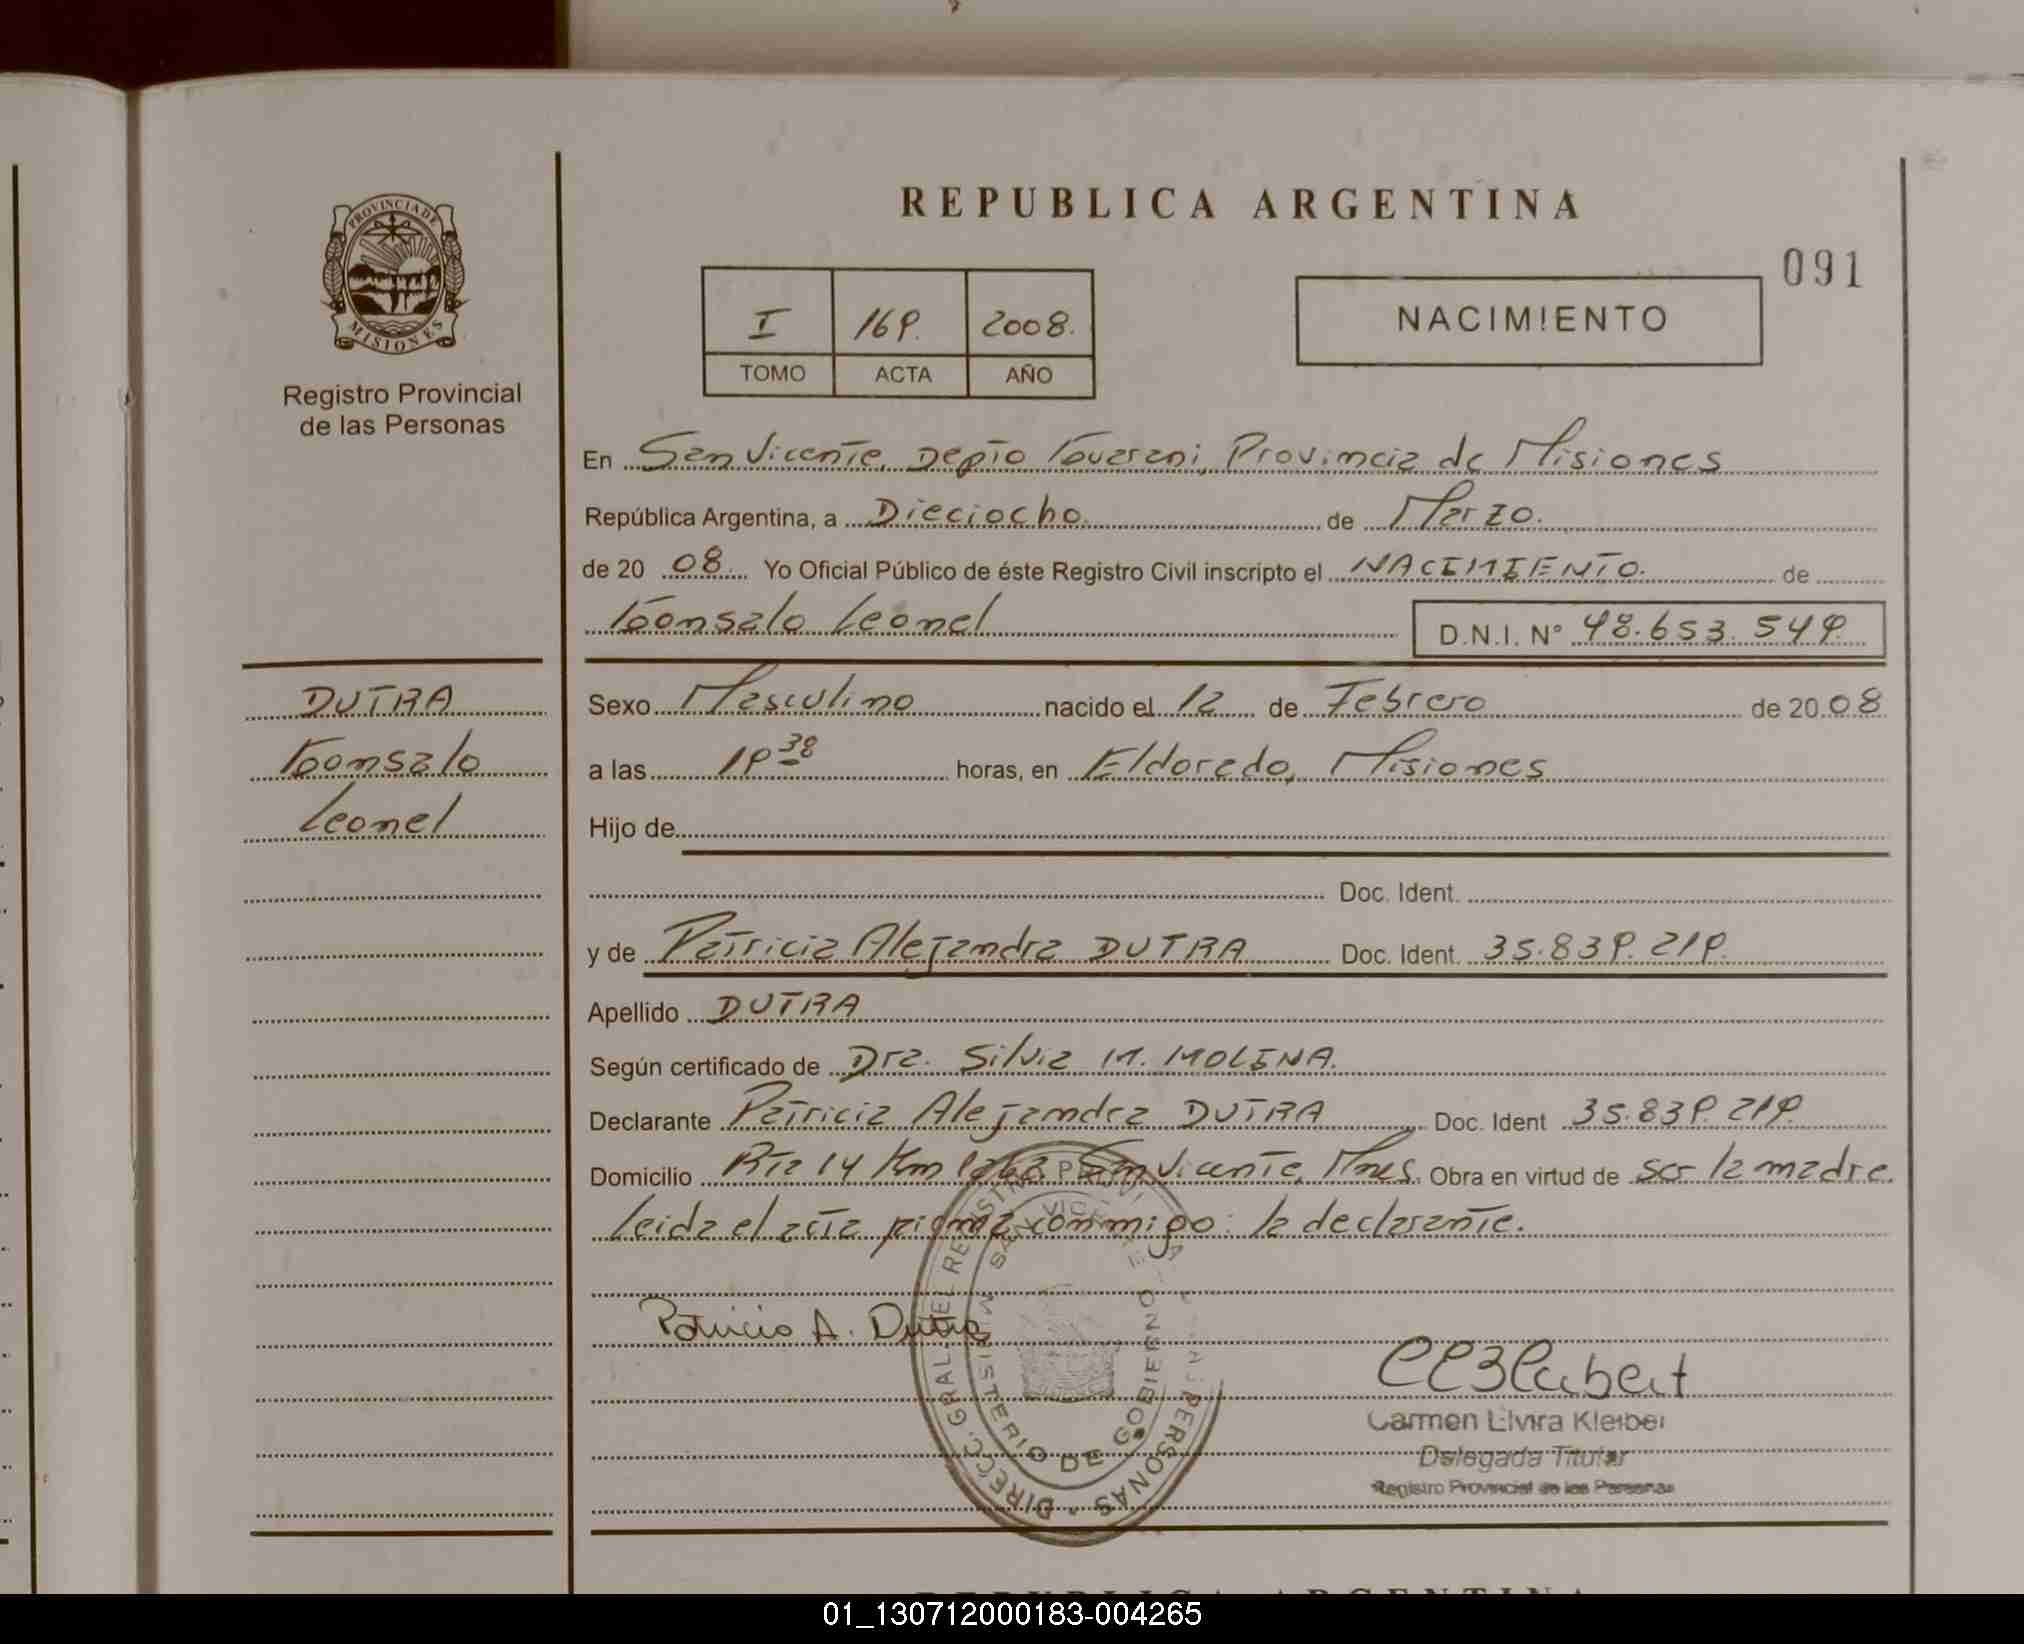 REPUBLICA ARGENTINA
091
PROVINCIA DE
MISIONES
Registro Provincial
de las Personas
I 169. 2008.
TOMO ACTA AÑO
NACIMIENTO
En San Vicente, Depto Guarani, Provincia de Misiones
República Argentina, a Dieciocho de Marzo.
de 20 08. Yo Oficial Público de éste Registro Civil inscripto el NACIMIENTO. de
Gonsalo Leonel D.N.I. N° 48.653.549.
DUTRA
Gonsalo
Leonel
Sexo Masculino nacido el 12 de Febrero de 20 08
a las 19 38 horas, en Eldorado, Misiones
Hijo de
Doc. Ident.
y de Patricia Alejandra DUTRA Doc. Ident. 35.839.219.
Apellido DUTRA
Según certificado de Dra. Silvia M. MOLINA.
Declarante Patricia Alejandra DUTRA Doc. Ident 35.839.219.
Domicilio Rta 14 Km San Vicente, Mnes. Obra en virtud de ser la madre.
Leida el acta firma conmigo: la declarante.
Patricia A. Dutra
DIRECC. GRAL. DEL REGISTRO PERSONAS
SAN VICENTE
MINISTERIO DE GOBIERNO
Carmen Elvira Kleiber
Delegada Titular
Registro Provincial de las Personas
REPUBLICA ARGENTINA
01_130712000183-004265